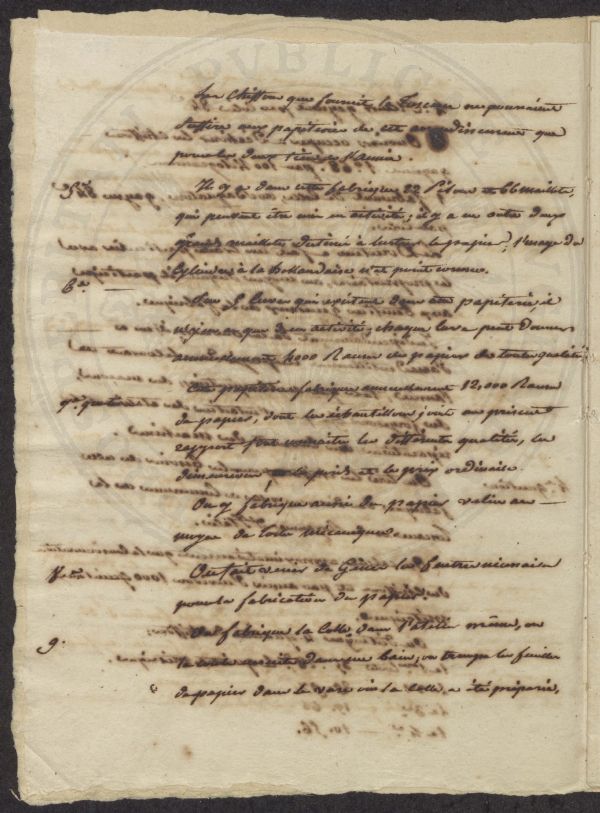 Les Chiffons que fournit la Toscane ne pourraient
suffire aux papeteries de cet arrondissement que
pour les deux tiers de l'année.
5e
Il y a dans cette fabrique 22 Piles 66 Maillets,
qui peuvent être mis en activité; il y a en outre deux
grands maillets destinés à lustrer le papier; l'usage des
Cylindres à la Hollandaise n'est point connu.
6e
Sur 5 Cuves qui existent dans cette papeterie, il
n'y en a que 3 en activité; chaque Cuve peut donner
annuellement 4000 Rames de papiers de toutes qualités
Cette papeterie fabrique annuellement 12,000 Rames
de papier, dont les échantillons joints au présent
rapport font connaître les différentes qualités, les
dimensions, le poids et le prix ordinaire.
On y fabrique aussi du papier velin au
moyen de toile mécanique.
On fait venir de Gênes les feutres nécessaires
pour la fabrication du papier.
9.
On fabrique la Colle dans l'atelier même, on
la coule ensuite dans une bain; on trempe les feuilles
de papier dans le vase où la Colle a été préparée.